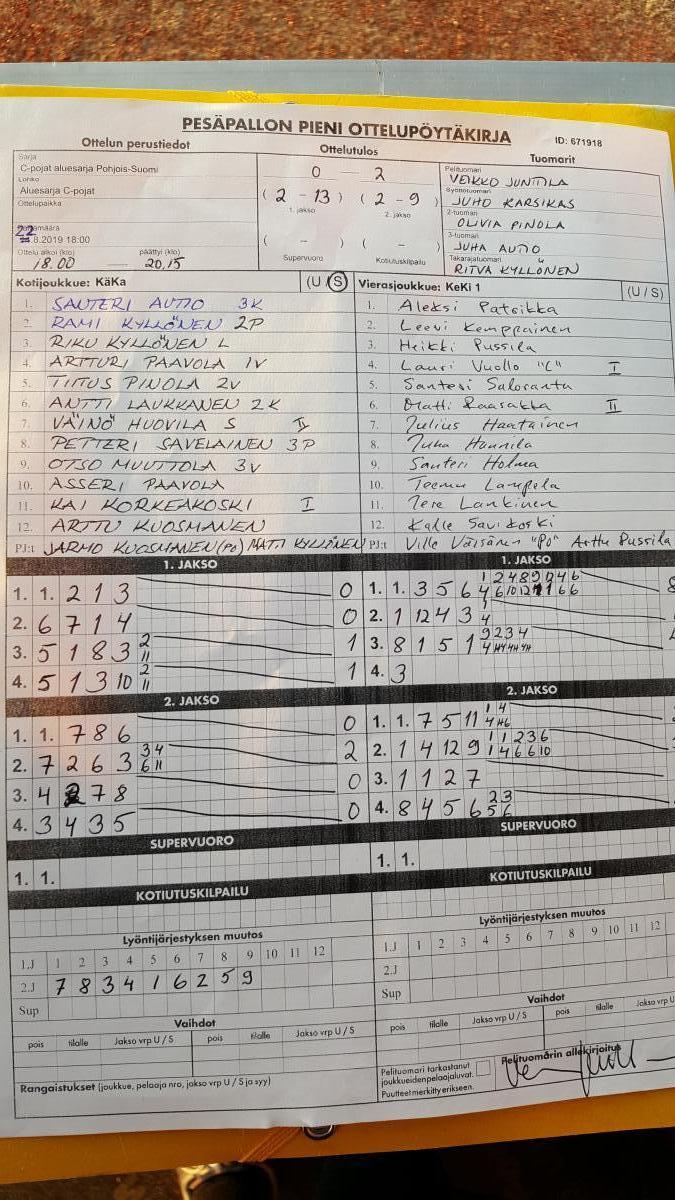 PESÄPALLON PIENI OTTELUPÖYTÄKIRJA
ID: 671918
Ottelun perustiedot
Sarja
C-pojat aluesarja Pohjois-Suomi
Lohko
Aluesarja C-pojat
Ottelupaikka
22
.8.2019 18:00
Ottelu alkoi (klo) päättyi (klo)
18.00 20,15
Ottelutulos
0 - 2
( 2 - 13 ) ( 2 - 9 )
1. jakso 2. jakso
( - ) ( - )
Supervuoro Kotiutuskilpailu
Tuomarit
Pelituomari
VEIKKO JUNTTILA
Syöttötuomari
JUHO KARSIKAS
2-tuomari
OLIVIA PINOLA
3-tuomari
JUHA AUTIO
Takarajatuomari
RITVA KYLLÖNEN
Kotijoukkue: KäKa (U / S)
1. SANTERI AUTIO 3K
2. RAMI KYLLÖNEN 2P
3. RIKU KYLLÖNEN L
4. ARTTURI PAAVOLA 1V
5. TIITUS PINOLA 2V
6. ANTTI LAUKKANEN 2K
7. VÄINÖ HUOVILA S II
8. PETTERI SAVELAINEN 3P
9. OTSO MUUTTOLA 3V
10. ASSERI PAAVOLA
11. KAI KORKEAKOSKI I
12. ARTTU KUOSMANEN
PJ:t JARMO KUOSMANEN (PO) MATTI KYLLÖNEN
Vierasjoukkue: KeKi 1 (U / S)
1. Aleksi Patsikka
2. Leevi Kemppainen
3. Heikki Pussila
4. Lauri Vuollo "C" I
5. Santeri Saloranta
6. Matti Raasakka II
7. Julius Haatainen
8. Juha Hannila
9. Santeri Holma
10. Teemu Lampela
11. Jere Lankinen
12. Kalle Savikoski
PJ:t Ville Väisänen "PO" Arttu Pussila
1. JAKSO
1. 1. 2 1 3 0
2. 6 7 1 4 0
3. 5 1 8 3 2 11 1
4. 5 1 3 10 2 11 1
1. JAKSO
1. 1. 3 5 6
2. 1 12 4 3 1 4
3. 8 1 5 1 9 2 3 4
4. 3
2. JAKSO
1. 1. 7 8 6 0
2. 7 2 6 3 3 4 6 11 2
3. 4 2 7 8 0
4. 3 4 3 5 0
2. JAKSO
1. 1. 7 5 11 1 4
2. 1 4 12 9 1 1 2 3 6 1 4 6 6 10
3. 1 1 2 7
4. 8 4 5 6 2 3 5 6
SUPERVUORO
1. 1.
SUPERVUORO
1. 1.
KOTIUTUSKILPAILU
KOTIUTUSKILPAILU
Lyöntijärjestyksen muutos
1.J 1 2 3 4 5 6 7 8 9 10 11 12
2.J 7 8 3 4 1 6 2 5 9
Sup
Lyöntijärjestyksen muutos
1.J 1 2 3 4 5 6 7 8 9 10 11 12
2.J
Sup
Vaihdot
pois tilalle Jakso vrp U / S pois tilalle Jakso vrp U / S
Vaihdot
pois tilalle Jakso vrp U / S pois tilalle Jakso vrp U
Rangaistukset (joukkue, pelaaja nro, jakso vrp U / S ja syy)
Pelituomari tarkastanut
joukkueiden pelaajaluvat.
Puutteet merkitty erikseen.
Pelituomarin allekirjoitus